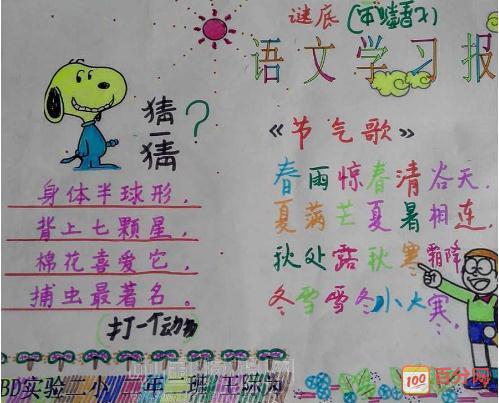 谜底
语文学习报
猜一猜?
身体半球形,
背上七颗星,
棉花喜爱它,
捕虫最著名。
打一个动物
《节气歌》
春雨惊春清谷天,
夏满芒夏暑相连,
秋处露秋寒霜降
冬雪雪冬小大寒,
BD实验二小 年二班
100 百分网